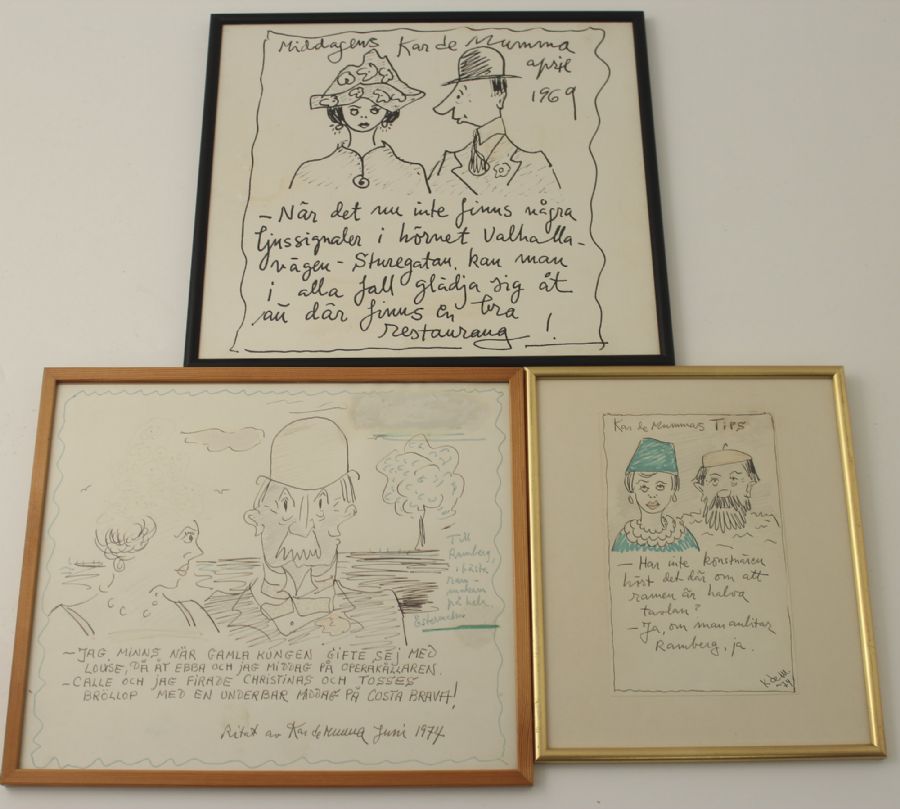 Middagens Kar de Mumma
april
1969
- När det nu inte finns några
ljussignaler i hörnet Valhalla-
vägen - Sturegatan, kan man
i alla fall glädja sig åt
att där finns en bra
restaurang!
Till
Ramberg,
i bästa
ram-
makarn
på hela
Östermalm
- JAG MINNS NÄR GAMLA KUNGEN GIFTE SEJ MED
LOUISE, DÅ ÅT EBBA OCH JAG MIDDAG PÅ OPERAKÄLLAREN.
- CALLE OCH JAG FIRADE CHRISTINAS OCH TOSSES
BRÖLLOP MED EN UNDERBAR MIDDAG PÅ COSTA BRAVA!
Ritat av Kar de Mumma Juni 1974
Kar de Mummas TIPS
- Har inte konstnären
hört det där om att
ramen är halva
tavlan?
- Ja, om man anlitar
Ramberg, ja.
K de M
-79